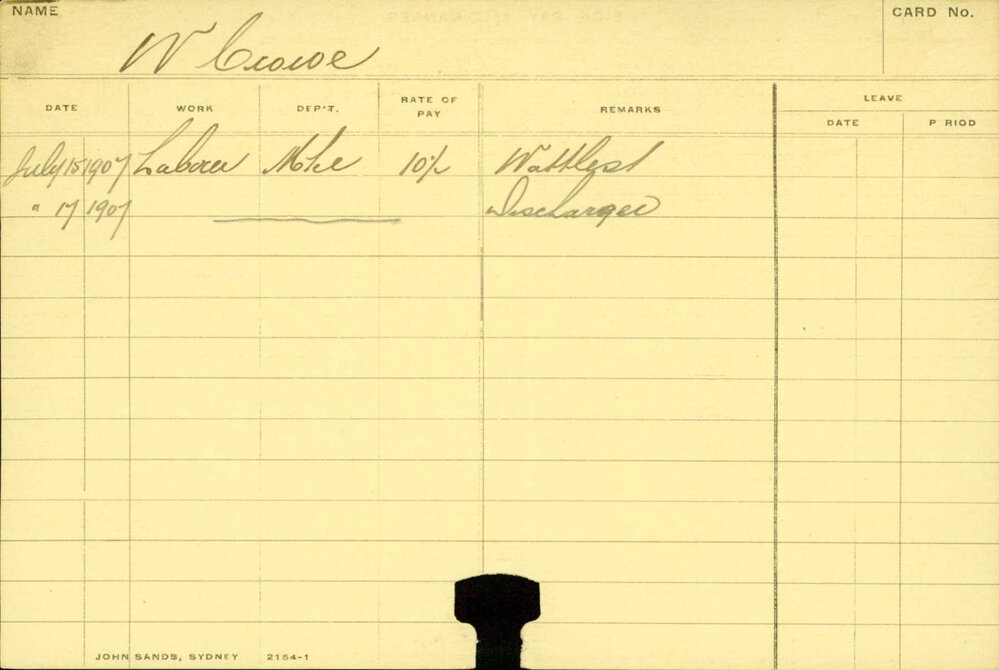 NAME
CARD No.
W Crowe
DATE WORK DEP'T. RATE OF PAY REMARKS LEAVE
DATE P RIOD
July 15 1907 Labourer 10/- Wattle st
" 17 1907 Discharged
JOHN SANDS, SYDNEY 2154-1